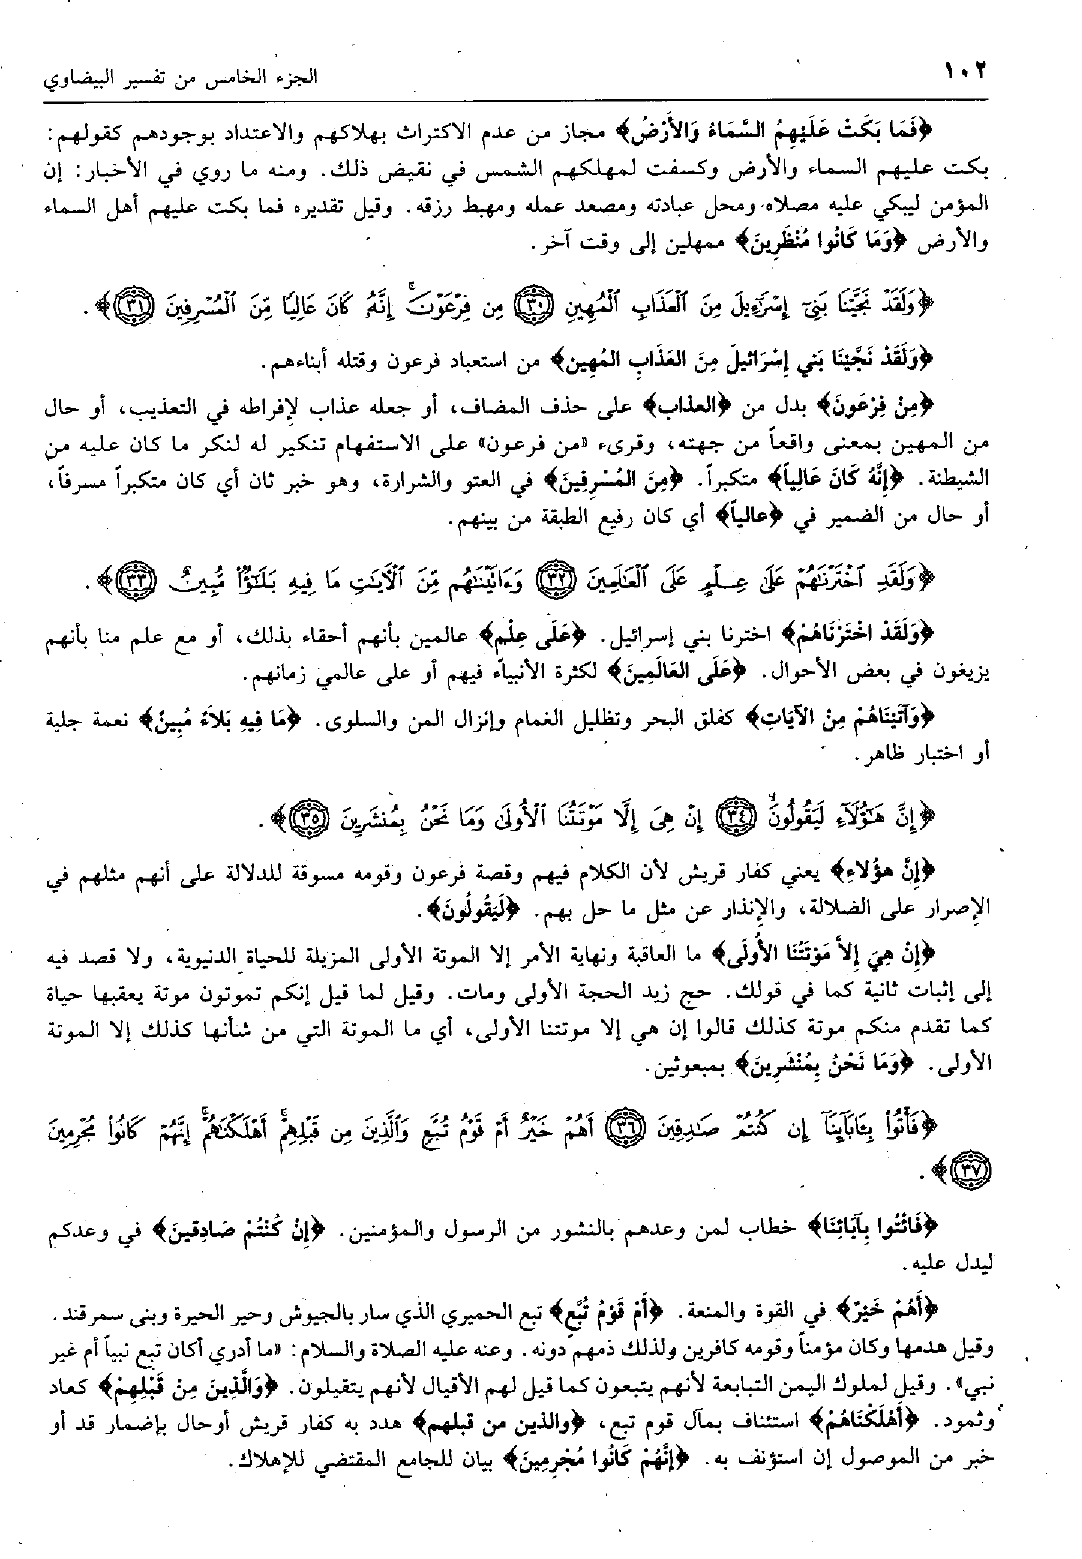 ١٠٢
الجزء الخامس من تفسير البيضاوي
﴿فَمَا بَكَتْ عَلَيْهِمُ السَّمَاءُ وَالأَرْضُ﴾ مجاز من عدم الاكتراث بهلاكهم والاعتداد بوجودهم كقولهم:
بكت عليهم السماء والأرض وكسفت لمهلكهم الشمس في نقيض ذلك. ومنه ما روي في الأخبار: إن
المؤمن ليبكي عليه مصلاه ومحل عبادته ومصعد عمله ومهبط رزقه. وقيل تقديره فما بكت عليهم أهل السماء
والأرض ﴿وَمَا كَانُوا مُنْظَرِينَ﴾ ممهلين إلى وقت آخر.
﴿وَلَقَدْ نَجَّيْنَا بَنِىٓ إِسْرَٰٓءِيلَ مِنَ ٱلْعَذَابِ ٱلْمُهِينِ ﴿٣٠﴾ مِن فِرْعَوْنَ ۚ إِنَّهُۥ كَانَ عَالِيًا مِّنَ ٱلْمُسْرِفِينَ ﴿٣١﴾﴾.
﴿وَلَقَدْ نَجَّيْنَا بَنِي إِسْرَائيلَ مِنَ العَذَابِ المُهِين﴾ من استعباد فرعون وقتله أبناءهم.
﴿مِنْ فِرْعَونَ﴾ بدل من ﴿العذاب﴾ على حذف المضاف، أو جعله عذاب لإفراطه في التعذيب، أو حال
من المهين بمعنى واقعاً من جهته، وقرىء «من فرعون» على الاستفهام تنكير له لنكر ما كان عليه من
الشيطنة. ﴿إِنَّهُ كَانَ عَالِياً﴾ متكبراً. ﴿مِنَ المُسْرِفِينَ﴾ في العتو والشرارة، وهو خبر ثان أي كان متكبراً مسرفاً،
أو حال من الضمير في ﴿عالياً﴾ أي كان رفيع الطبقة من بينهم.
﴿وَلَقَدِ ٱخْتَرْنَٰهُمْ عَلَىٰ عِلْمٍ عَلَى ٱلْعَٰلَمِينَ ﴿٣٢﴾ وَءَاتَيْنَٰهُم مِّنَ ٱلْءَايَٰتِ مَا فِيهِ بَلَٰٓؤٌا۟ مُّبِينٌ ﴿٣٣﴾﴾.
﴿وَلَقَدْ اخْتَرْنَاهُمْ﴾ اخترنا بني إسرائيل. ﴿عَلَى عِلْم﴾ عالمين بأنهم أحقاء بذلك، أو مع علم منا بأنهم
يزيغون في بعض الأحوال. ﴿عَلَى العَالَمِينَ﴾ لكثرة الأنبياء فيهم أو على عالمي زمانهم.
﴿وَآتَيْنَاهُمْ مِنَ الآيَاتِ﴾ كفلق البحر وتظليل الغمام وإنزال المن والسلوى. ﴿مَا فِيهِ بَلاَءٌ مُبِينٌ﴾ نعمة جلية
أو اختبار ظاهر.
﴿إِنَّ هَٰٓؤُلَآءِ لَيَقُولُونَ ﴿٣٤﴾ إِنْ هِىَ إِلَّا مَوْتَتُنَا ٱلْأُولَىٰ وَمَا نَحْنُ بِمُنشَرِينَ ﴿٣٥﴾﴾.
﴿إِنَّ هؤُلاءِ﴾ يعني كفار قريش لأن الكلام فيهم وقصة فرعون وقومه مسوقة للدلالة على أنهم مثلهم في
الإصرار على الضلالة، والإنذار عن مثل ما حل بهم. ﴿لَيَقُولُونَ﴾.
﴿إِنْ هِيَ إِلاَّ مَوْتَتُنَا الأُولَى﴾ ما العاقبة ونهاية الأمر إلا الموتة الأولى المزيلة للحياة الدنيوية، ولا قصد فيه
إلى إثبات ثانية كما في قولك. حج زيد الحجة الأولى ومات. وقيل لما قيل إنكم تموتون موتة يعقبها حياة
كما تقدم منكم موتة كذلك قالوا إن هي إلا موتتنا الأولى، أي ما الموتة التي من شأنها كذلك إلا الموتة
الأولى. ﴿وَمَا نَحْنُ بِمُنْشَرِينَ﴾ بمبعوثين.
﴿فَأْتُوا۟ بِـَٔابَآئِنَآ إِن كُنتُمْ صَٰدِقِينَ ﴿٣٦﴾ أَهُمْ خَيْرٌ أَمْ قَوْمُ تُبَّعٍ وَٱلَّذِينَ مِن قَبْلِهِمْ ۚ أَهْلَكْنَٰهُمْ ۖ إِنَّهُمْ كَانُوا۟ مُجْرِمِينَ
﴿٣٧﴾﴾.
﴿فَائْتُوا بِآبَائِنَا﴾ خطاب لمن وعدهم بالنشور من الرسول والمؤمنين. ﴿إِنْ كُنْتُمْ صَادِقِينَ﴾ في وعدكم
ليدل عليه.
﴿أَهُمْ خَيْرٌ﴾ في القوة والمنعة. ﴿أَمْ قَوْمُ تُبَّعٍ﴾ تبع الحميري الذي سار بالجيوش وحير الحيرة وبنى سمرقند.
وقيل هدمها وكان مؤمناً وقومه كافرين ولذلك ذمهم دونه. وعنه عليه الصلاة والسلام: «ما أدري أكان تبع نبياً أم غير
نبي». وقيل لملوك اليمن التبابعة لأنهم يتبعون كما قيل لهم الأقيال لأنهم يتقيلون. ﴿وَالَّذِينَ مِنْ قَبْلِهِمْ﴾ كعاد
وثمود. ﴿أَهْلَكْنَاهُمْ﴾ استئناف بمآل قوم تبع، ﴿والذين من قبلهم﴾ هدد به كفار قريش أوحال بإضمار قد أو
خبر من الموصول إن استؤنف به. ﴿إِنَّهُمْ كَانُوا مُجْرِمِينَ﴾ بيان للجامع المقتضي للإهلاك.